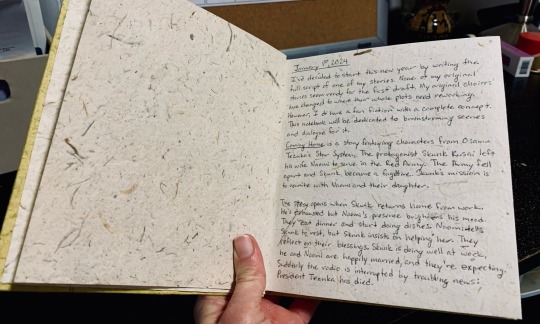 January 1st, 2024
I've decided to start this new year by writing the
full script of one of my stories. None of my original
stories seem ready for the first draft. My original stories'
have changed to where their whole plots need reworking.
However, I do have a fan fiction with a complete concept.
This notebook will be dedicated to brainstorming scenes
and dialogue for it.
Coming Home is a story featuring characters from Osamu
Tezuka's Star System. The protagonist Skunk Kusai left
his wife Naomi to serve in the Red Army. The Army fell
apart and Skunk became a fugitive. Skunk's mission is
to reunite with Naomi and their daughter.
The story opens when Skunk returns home from work.
He's exhausted but Naomi's presence brightens his mood.
They eat dinner and start doing dishes. Naomi tells
Skunk to rest, but Skunk insists on helping her. They
reflect on their blessings. Skunk is doing well at work,
he and Naomi are happily married, and they're expecting.
Suddenly the radio is interrupted by troubling news:
President Tezuka has died.